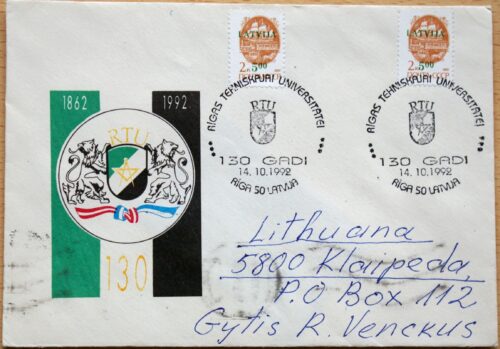 LATVIJA
2к 5 00
LATVIJA
2к 5 00
1862 1992
RTU
130
RĪGAS TEHNISKAJAI UNIVERSITĀTEI
RTU
130 GADI
14.10.1992
RĪGA 50 LATVIJA
RĪGAS TEHNISKAJAI UNIVERSITĀTEI
RTU
130 GADI
14.10.1992
RĪGA 50 LATVIJA
Lithuana
5800 Klaipeda,
P.O Box 112
Gytis R. Venckus